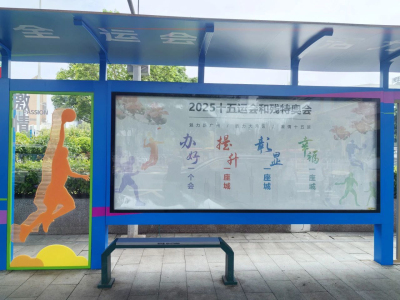 全运会
激情
PASSION
2025十五运会和残特奥会
办好一个会
提升一座城
彰显一座城
幸福一座城